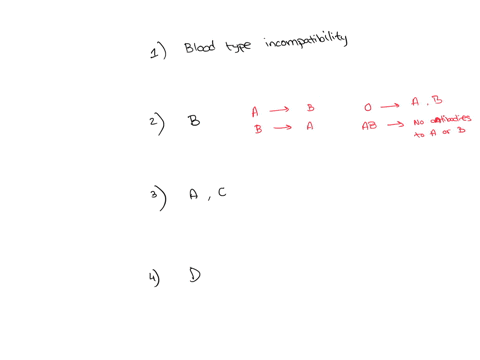 1) Blood type incompatibility
2) B A → B O → A, B
B → A AB → No antibodies to A or B
3) A, C
4) D